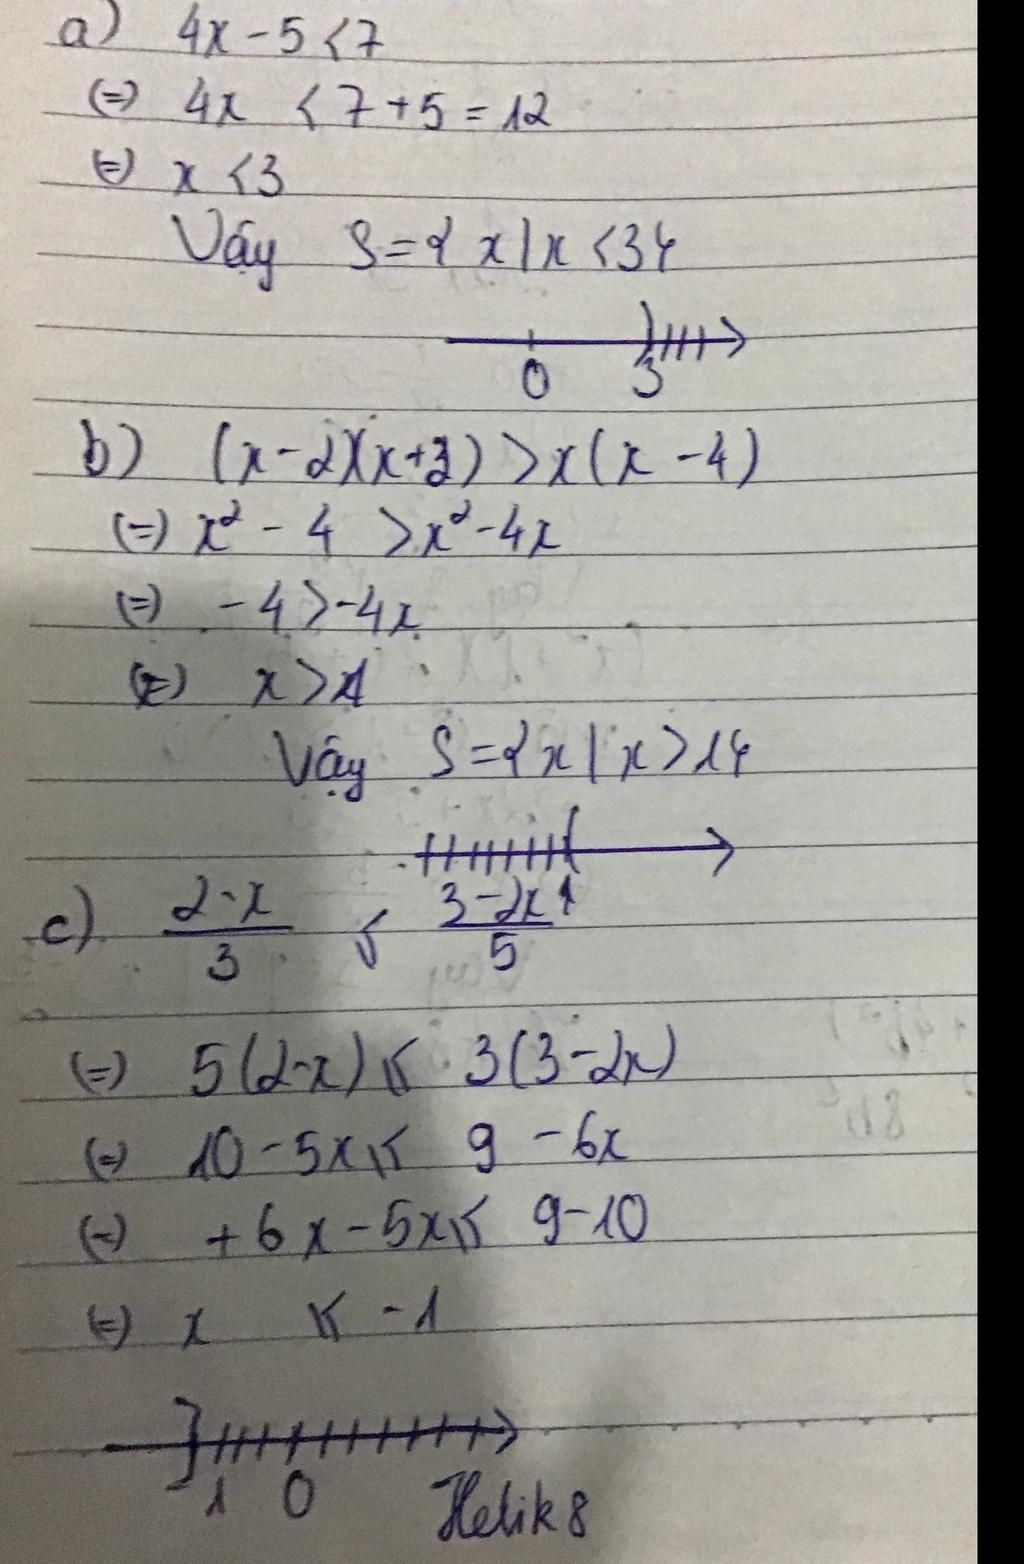 a) 4x - 5 < 7
(=) 4x < 7 + 5 = 12
(=) x < 3
Vậy S = { x | x < 3 }
0 3
b) (x - 2)(x + 2) > x (x - 4)
(=) x² - 4 > x² - 4x
(=) - 4 > - 4x
(=) x > 1
Vậy S = { x | x > 1 }
1
c) \frac{2-x}{3} ≤ \frac{3-2x}{5}
(=) 5(2-x) ≤ 3(3-2x)
(=) 10 - 5x ≤ 9 - 6x
(=) + 6x - 5x ≤ 9 - 10
(=) x ≤ - 1
-1 0 Helik8